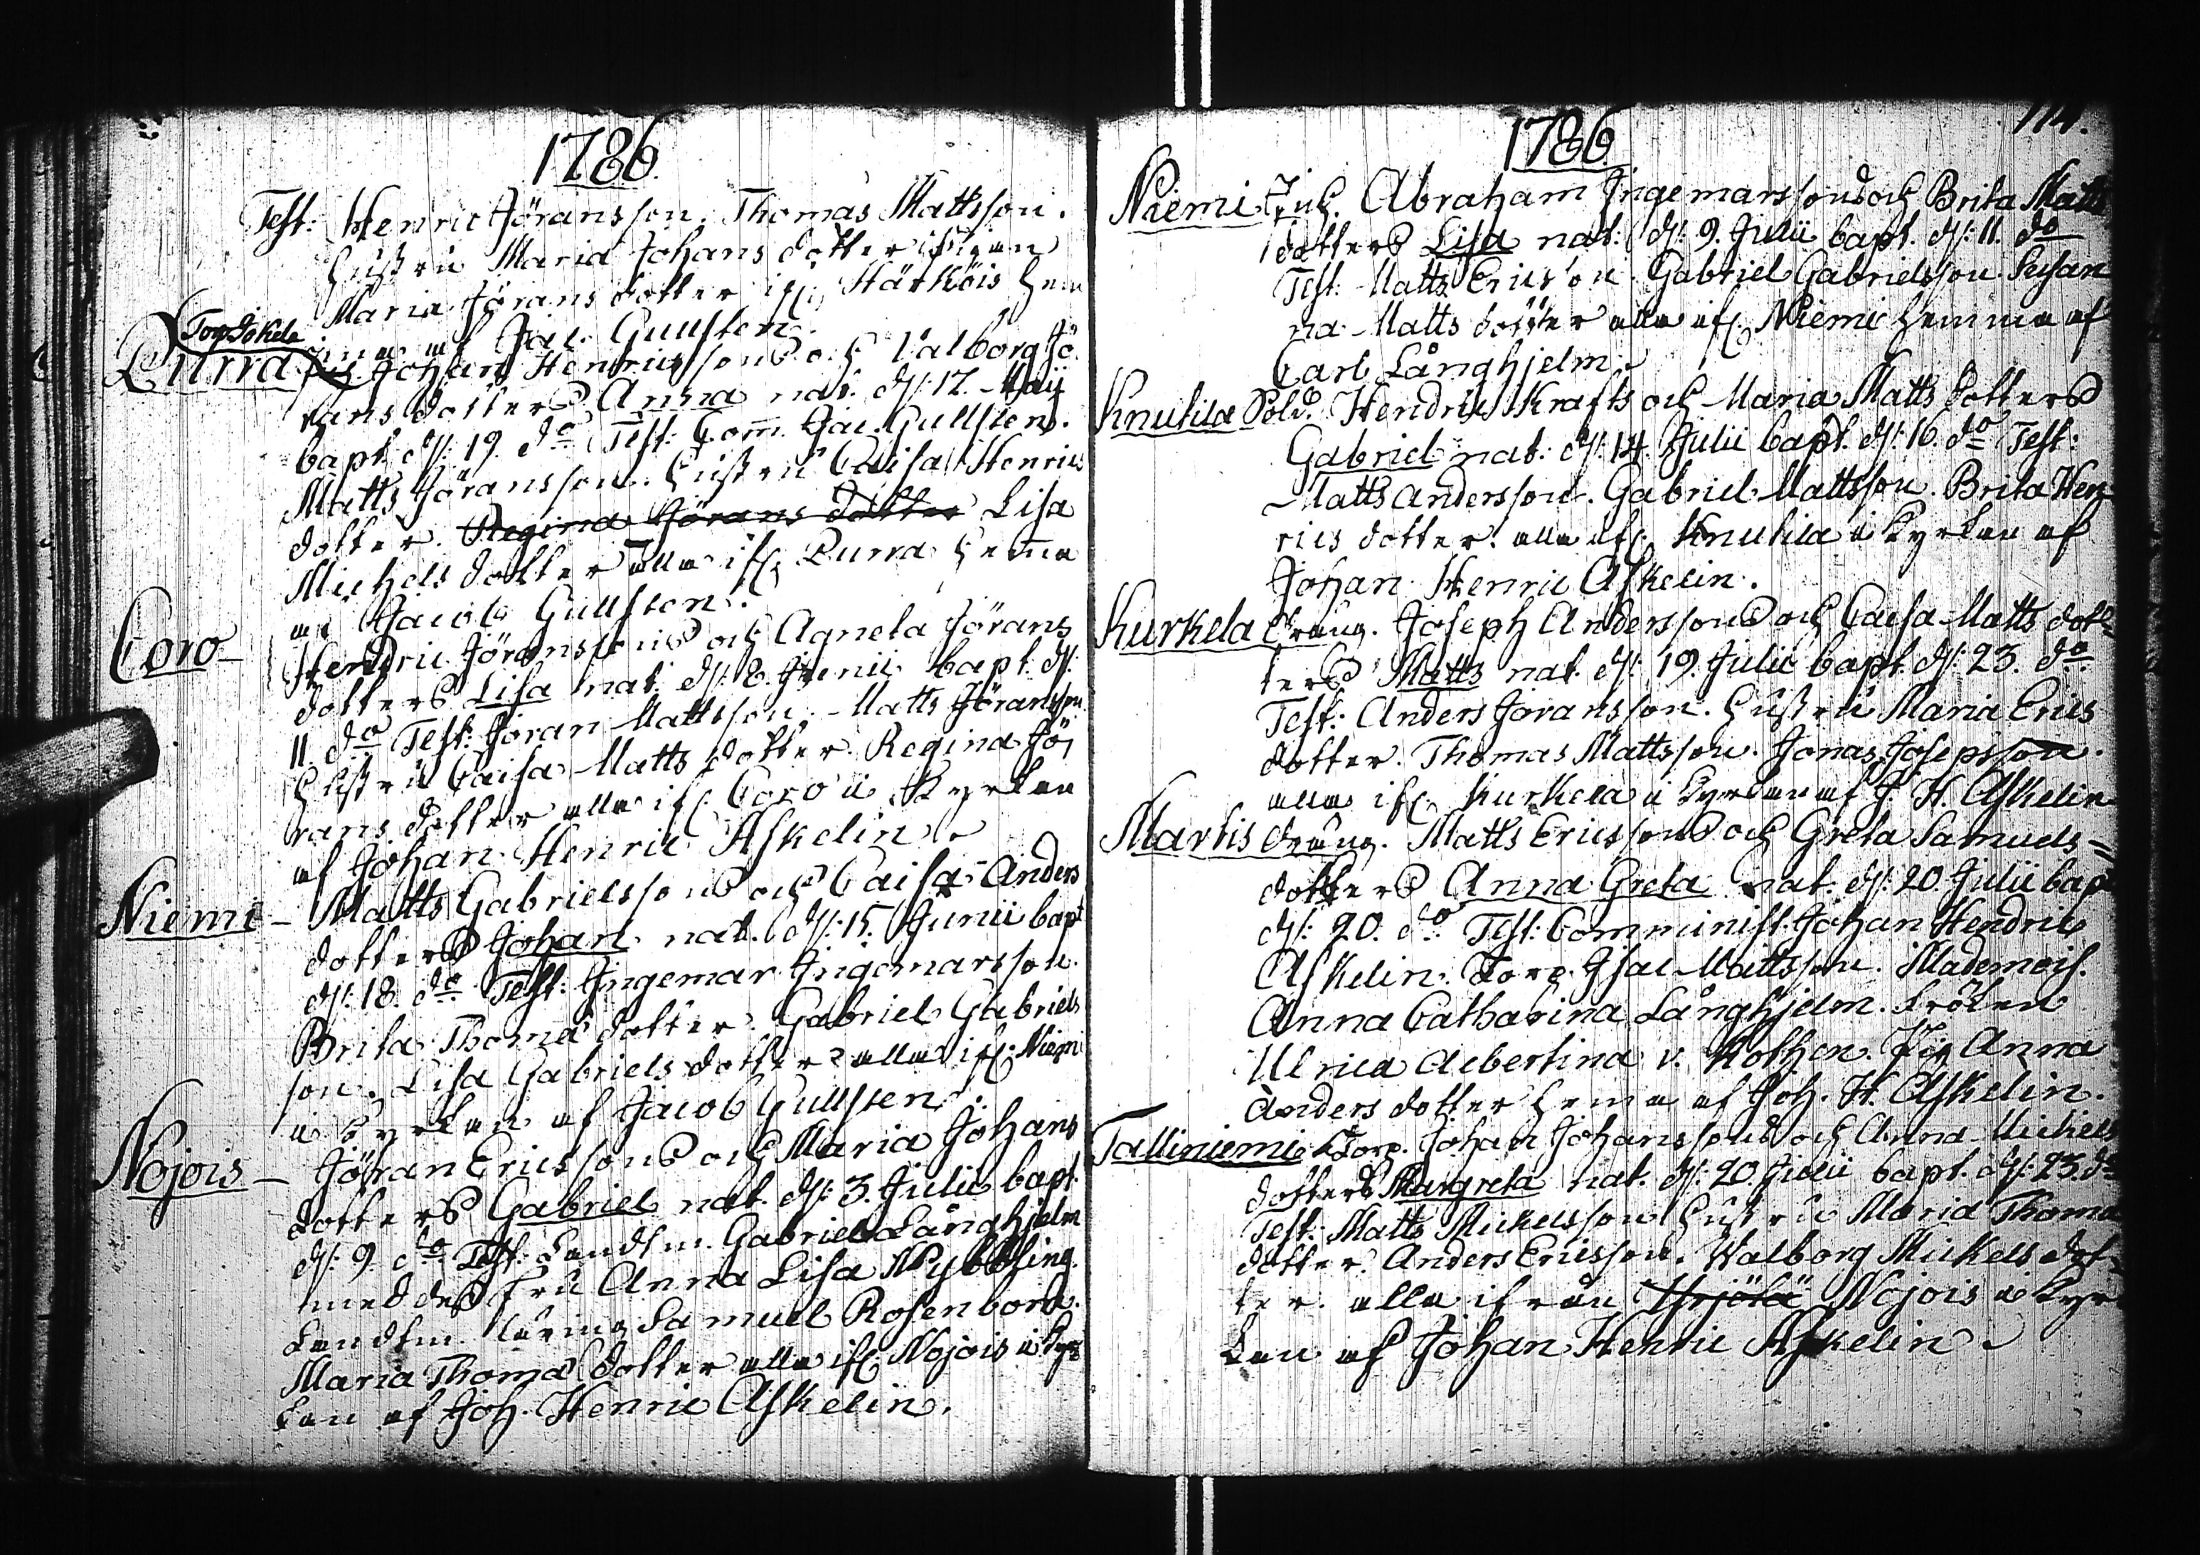 1786.
Test: Henric Jöransson. Thomas Mattsson.
hustru Maria Johans dotter ifrån
Maria Jörans dotter ifr. Härköis hem
Torp Jokela
ma af Jac. Gullsten.
Purra Johan Henricssons och Valborg Jö
rans dotters Anna nat. d. 17. Maji
bapt. d. 19. do Test: Com. Jac. Gullsten.
Matts Jöransson. hustru Caisa Henrics
dotter. Regina Jörans dotter Lisa
Michels dotter alla ifr. Purra hemma
af Jacob Gullsten.
Coro Hendric Jöranssons och Agneta Jörans
dotters Lisa nat. d. 8. Junii bapt. d.
11. do Test: Jöran Mattsson. Matts Jöransson
hustru Caisa Matts dotter. Regina Jö
rans dotter alla ifr. Coro i Kyrkan
af Johan Henric Askelin.
Niemi - Matts Gabrielssons och Caisa Anders
dotters Johan nat. d. 15. Junii bapt
d. 18. do Test: Ingemar Ingemarsson.
Brita Thomæ dotter. Gabriel Gabriels
son. Lisa Gabriels dotter alla ifr. Niemi
i Kyrkan af Jacob Gullsten.
Nojois - Jöran Ericssons och Maria Johans
dotters Gabriel nat. d. 3. Julii bapt.
d. 9. do Test: Landtm. Gabriel Långhjelm
med des Fru Anna Lisa
Landtm. Samuel Rosenborg.
Maria Thomæ dotter alla ifr. Nojois i Kyr
kan af Joh. Henric Askelin.
1786. 114.
Niemi Abraham Ingemarssons och Brita Matts
dotters Lisa nat: d. 9. Julii bapt. d. 11. do
Test: Matts Ericsson. Gabriel Gabrielsson. Susan
na Matts dotter alla ifr. Niemi hemma af
Carl Långhjelm.
Knutila Sold. Hendric Krafts och Maria Matts dotters
Gabriel nat: d. 14. Julii bapt. d. 16. do Test:
Matts Andersson. Gabriel Mattsson. Brita Hen
rics dotter. alla ifr. Knutila i Kyrkan af
Johan Henric Askelin.
Kurkela dräng. Joseph Anderssons och Caisa Matts dot=
ters Matts nat. d. 19. Julii bapt. d. 23. do.
Test: Anders Jöransson. hustru Maria Erics
dotter. Thomas Mattsson. Jonas Josepsson.
alla ifr. Kurkela i Kyrkan af J. H. Askelin
Martis dräng. Matts Ericssons och Greta Samuels=
dotters Anna Greta nat. d. 20. Julii bapt
d. 20. do. Test: Comminist. Johan Hendric
Askelin. Torp. Isac Mattsson. Mademois.
Anna Catharina Långhjelm. Fröken
Ulrica Albertina v. Kothen. Pig. Anna
Anders dotter hemma af Joh. H. Askelin.
Talliniemi Torp. Johan Johanssons och Anna Mickels
dotters Margreta nat. d. 20. Julii bapt. d. 23. do
Test: Matts Mickelsson hustru Maria Thomæ
dotter. Anders Ericsson. Walborg Mickels dot=
ter. alla ifrån Nojois i Kyr
kan af Johan Henric Askelin.